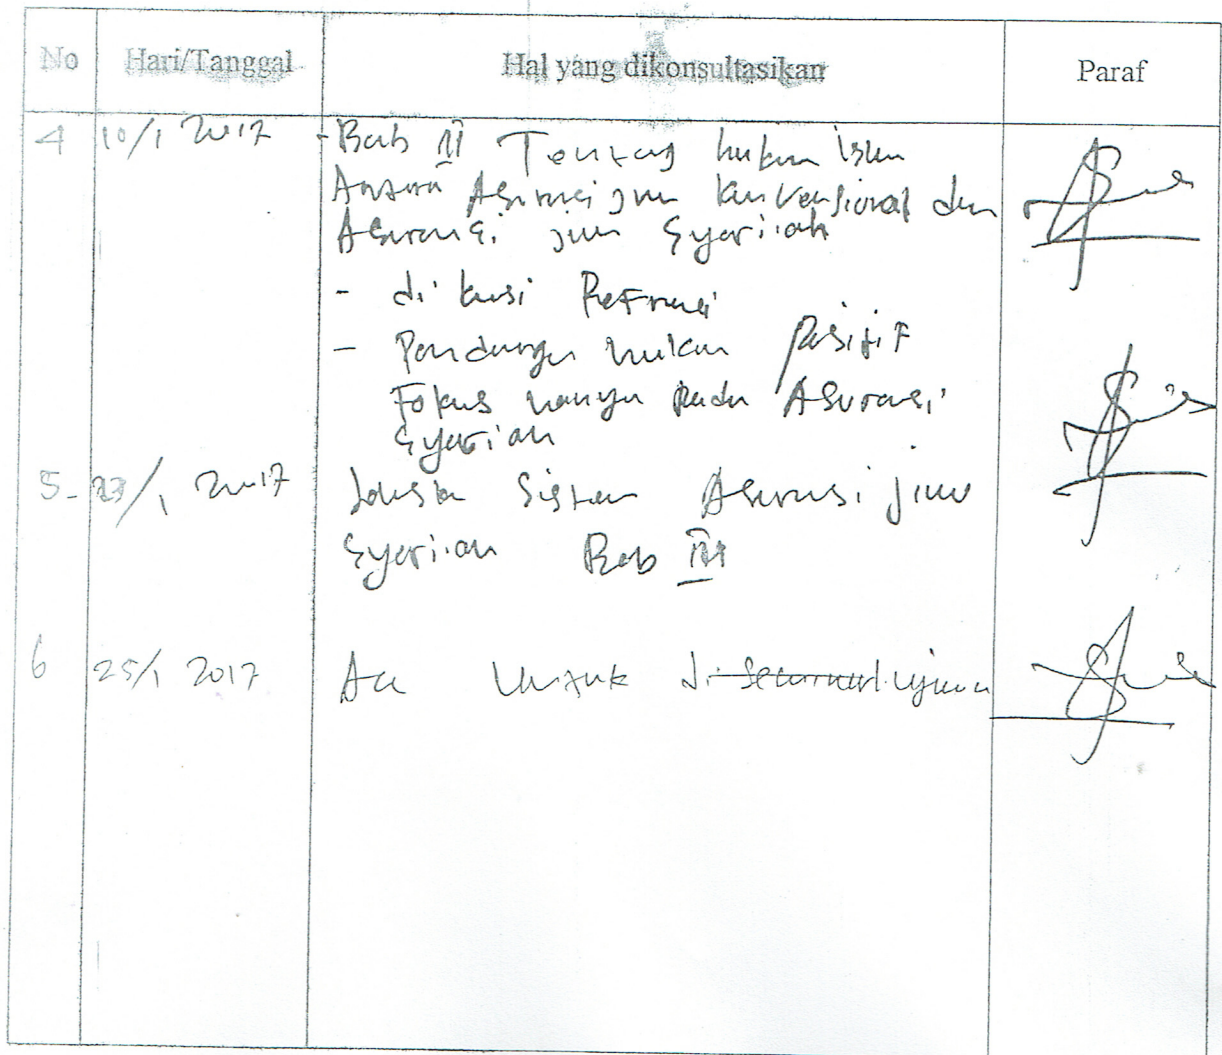 No Hari/Tanggal Hal yang dikonsultasikan Paraf
4 10/1 2017 - Bab II Tentang hukum Islam
Antara Asuransi jiwa konvensional dan
Asuransi jiwa Syariah
-
- Pandangan hukum Positif
Fokus hanya pada Asuransi
Syariah
5- 23/1 2017 Sistem Asuransi jiwa
Syariah Bab III
6 25/1 2017 Acc Untuk di ujikan